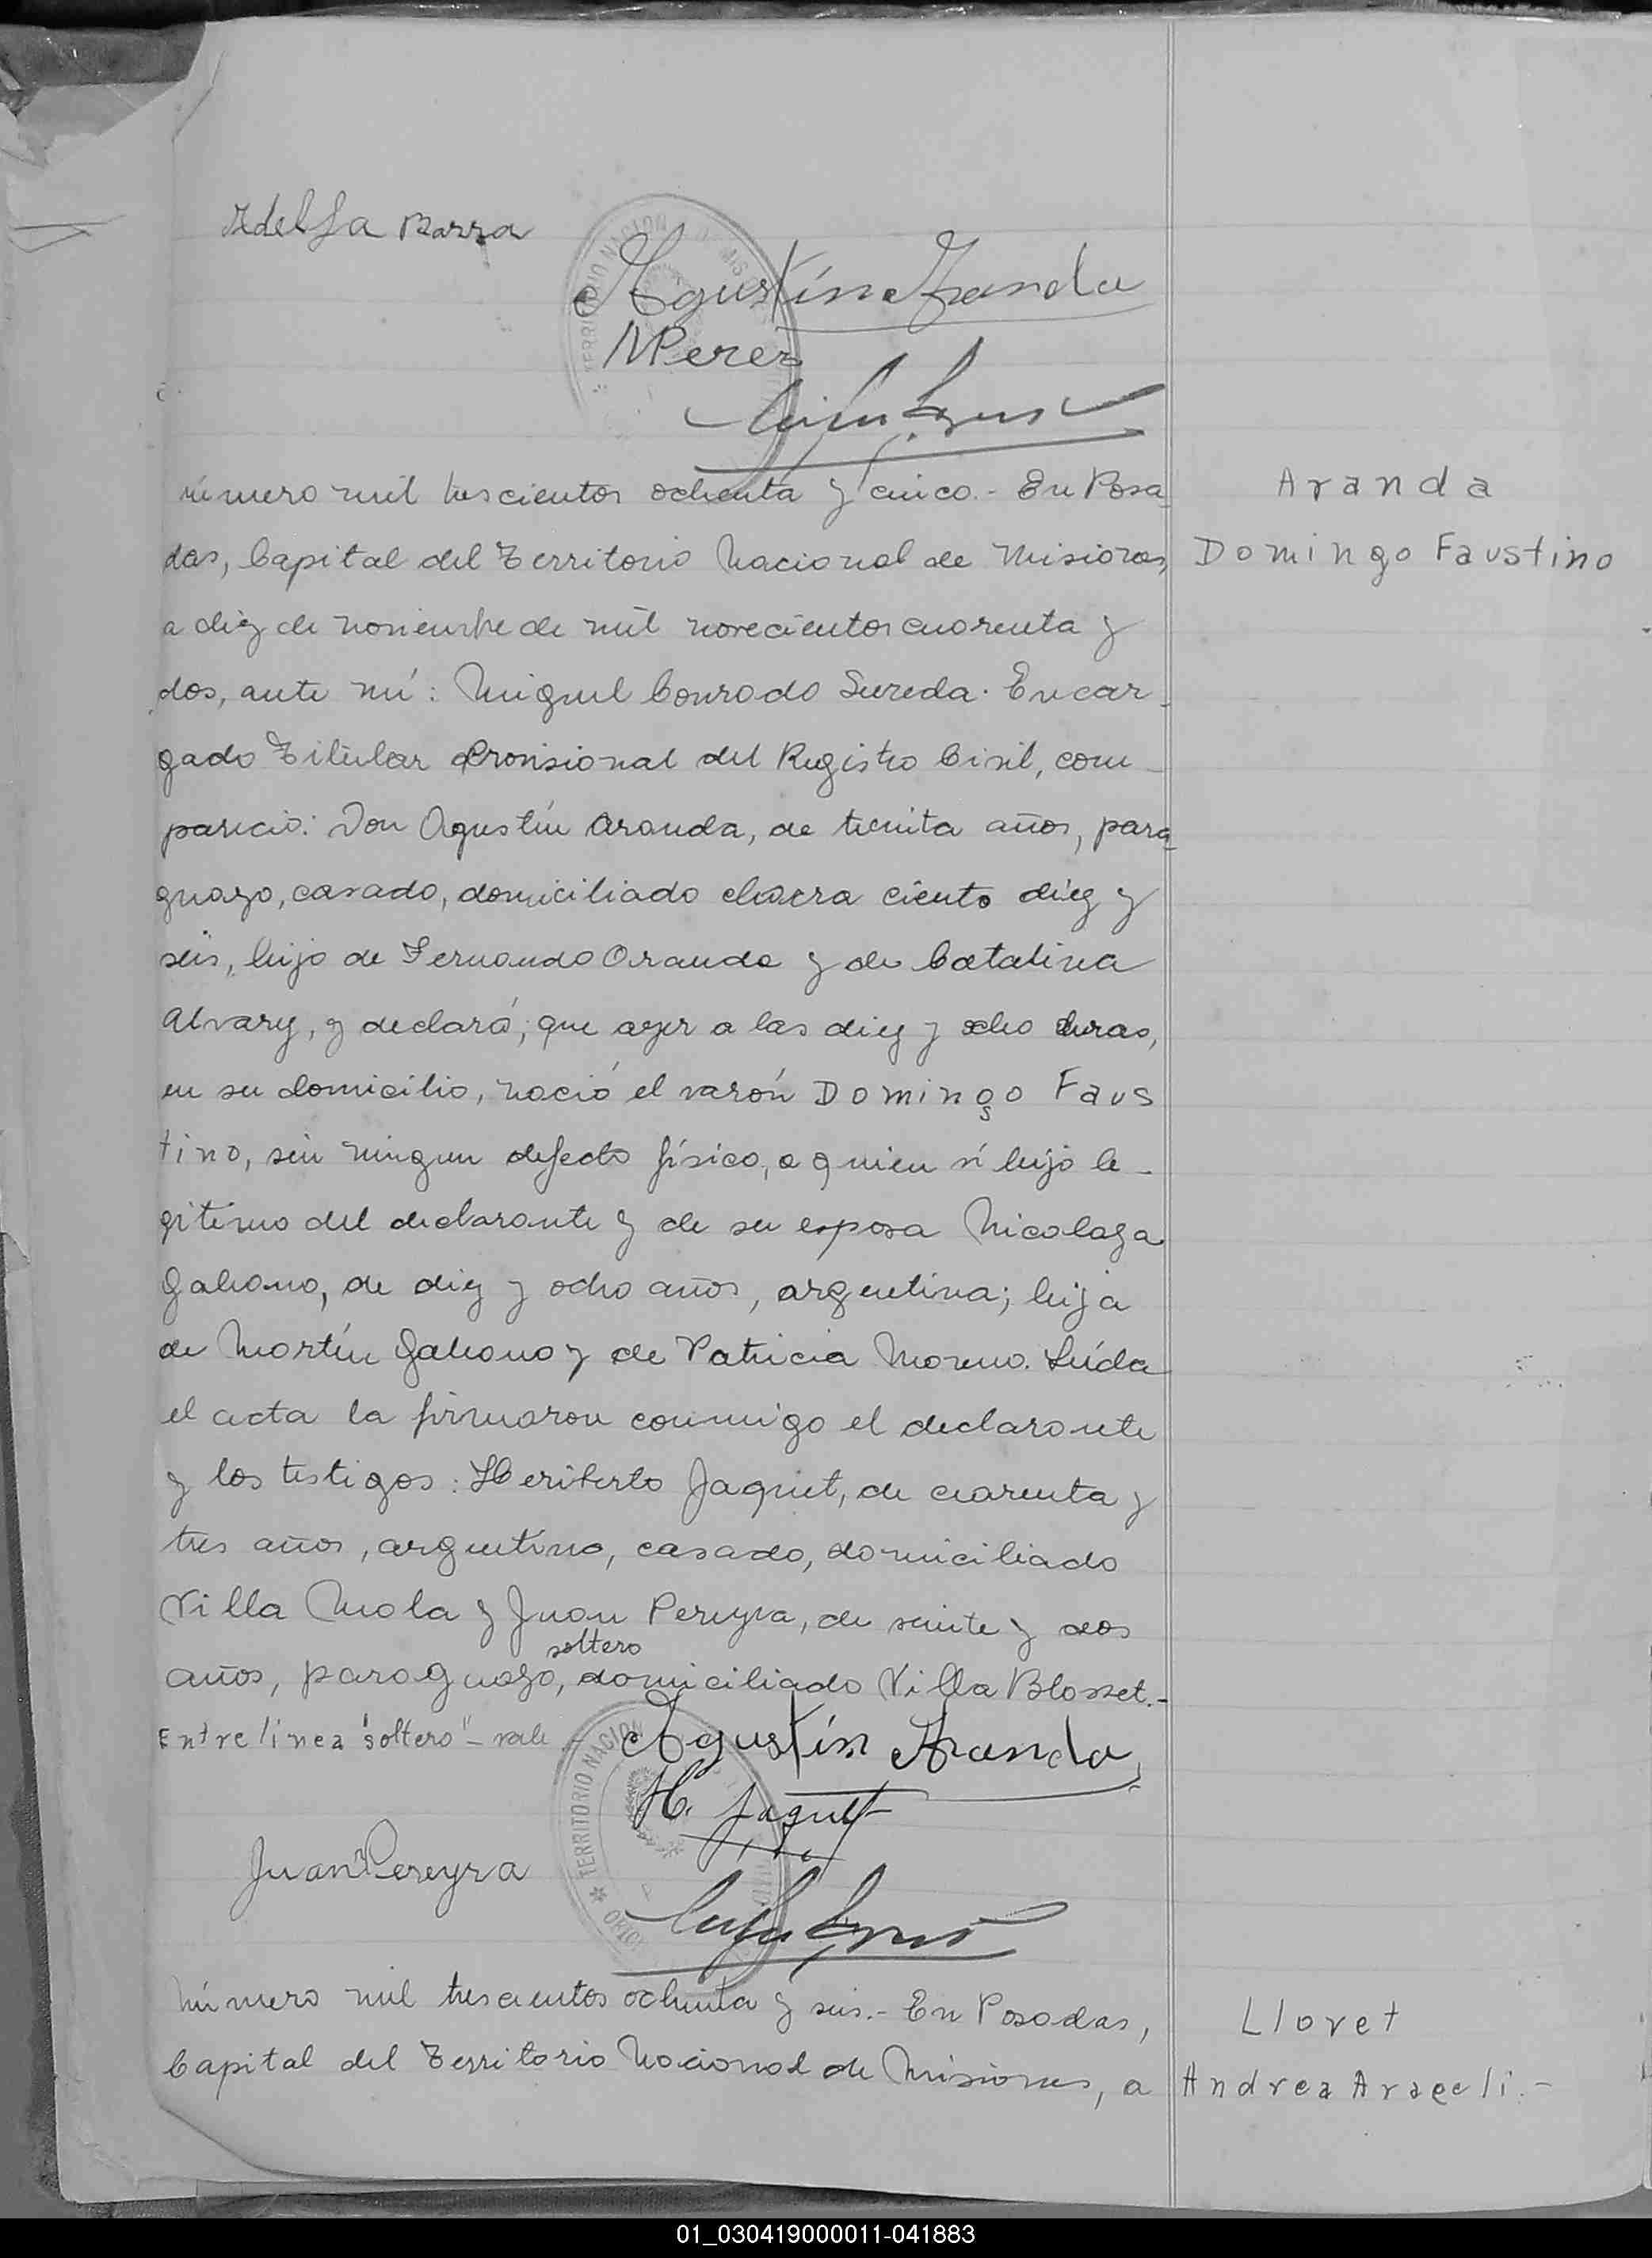 Idelfa Barra
Agustín Aranda
N Perez
número mil trescientos ochenta y cinco.- En Posa_ Aranda
das, Capital del Territorio Nacional de Misiones, Domingo Faustino
a diez de noviembre de mil novecientos cuarenta y
dos, ante mí: Miguel Conrado Sureda. Encar_
gado Titular Provisional del Registro Civil, com_
pareció: Don Agustín Aranda, de treinta años, para_
guayo, casado, domiciliado chacra ciento diez y
seis, hijo de Fernando Aranda y de Catalina
Alvarez, y declaró; que ayer a las diez y ocho horas,
en su domicilio, nació el varón Domingo Faus
tino, sin ningun defecto físico, a quien vi hijo le_
gitimo del declarante y de su esposa Nicolaza
Galeano, de diez y ocho años, argentina; hija
de Martín Galeano y de Patricia Moreno. Leída
el acta la firmaron conmigo el declarante
y los testigos: Heriberto Jaquet, de cuarenta y
tres años, argentino, casado, domiciliado
Villa Mola y Juan Pereyra, de veinte y dos
soltero
años, paraguayo, domiciliado Villa Blosset.-
Entre linea "soltero" - vale - Agustín Aranda
H. Jaquet
Juan Pereyra
TERRITORIO NACION
Número mil trescientos ochenta y seis.- En Posadas, Lloret
Capital del Territorio Nacional de Misiones, a Andrea Araceli.-
01_030419000011-041883